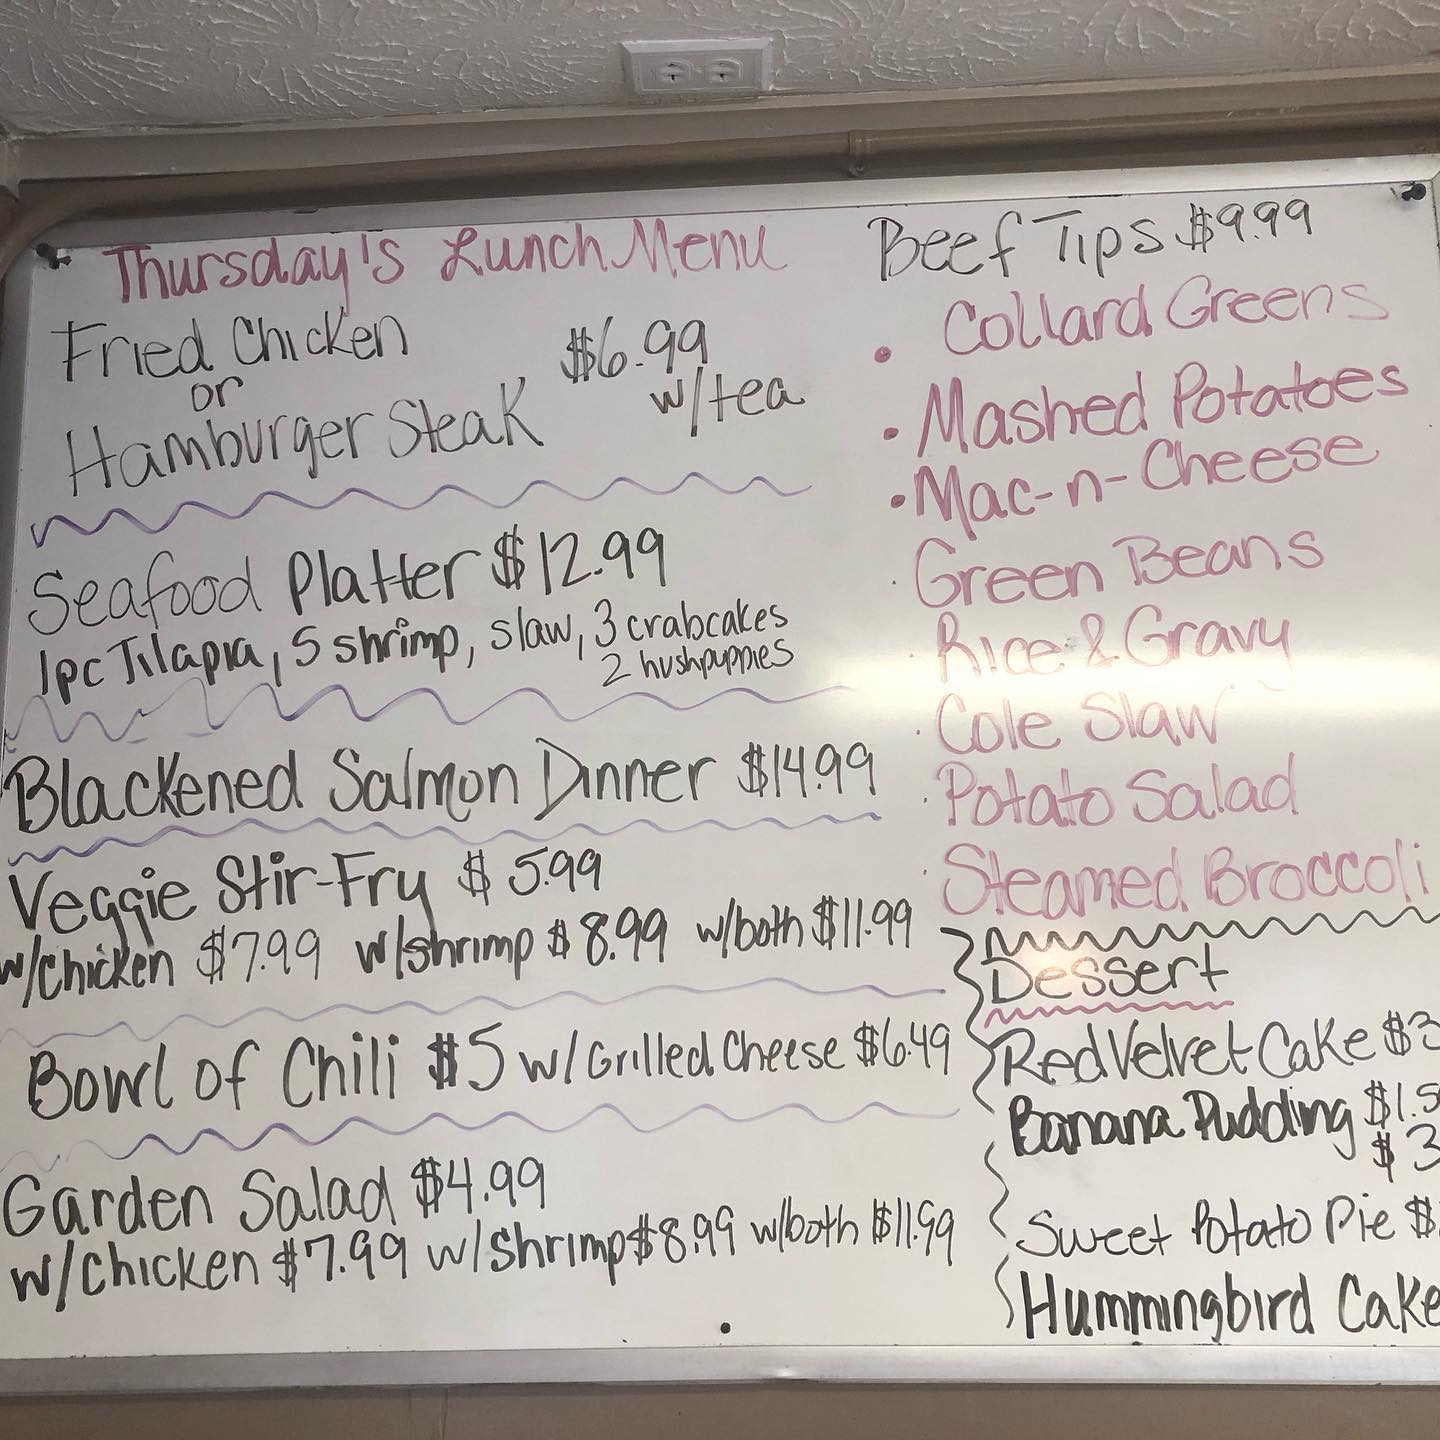 Thursday's Lunch Menu
Fried Chicken
or
Hamburger Steak
$6.99
w/tea
Seafood Platter $12.99
1pc Tilapia, 5 shrimp, slaw, 3 crabcakes
2 hushpuppies
Blackened Salmon Dinner $14.99
Veggie Stir-Fry $5.99
w/chicken $7.99 w/shrimp $8.99 w/both $11.99
Bowl of Chili $5 w/Grilled Cheese $6.49
Garden Salad $4.99
w/chicken $7.99 w/shrimp $8.99 w/both $11.99
Beef Tips $9.99
• Collard Greens
• Mashed Potatoes
• Mac-n-Cheese
· Green Beans
· Rice & Gravy
· Cole Slaw
· Potato Salad
· Steamed Broccoli
Dessert
Red Velvet Cake $3
Banana Pudding $1.5
$3
Sweet Potato Pie $
Hummingbird Cake